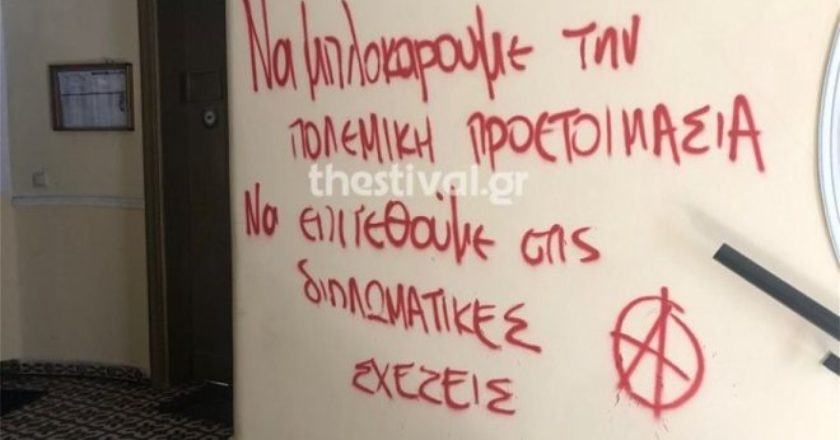 Να μπλοκαρουμε την
ΠΟΛΕΜΙΚΗ ΠΡΟΕΤΟΙΜΑΣΙΑ
thestival.gr
Να επιτεθούμε στις
διπλωΜΑΤΙΚΕΣ
ΣΧΕΣΕΙΣ